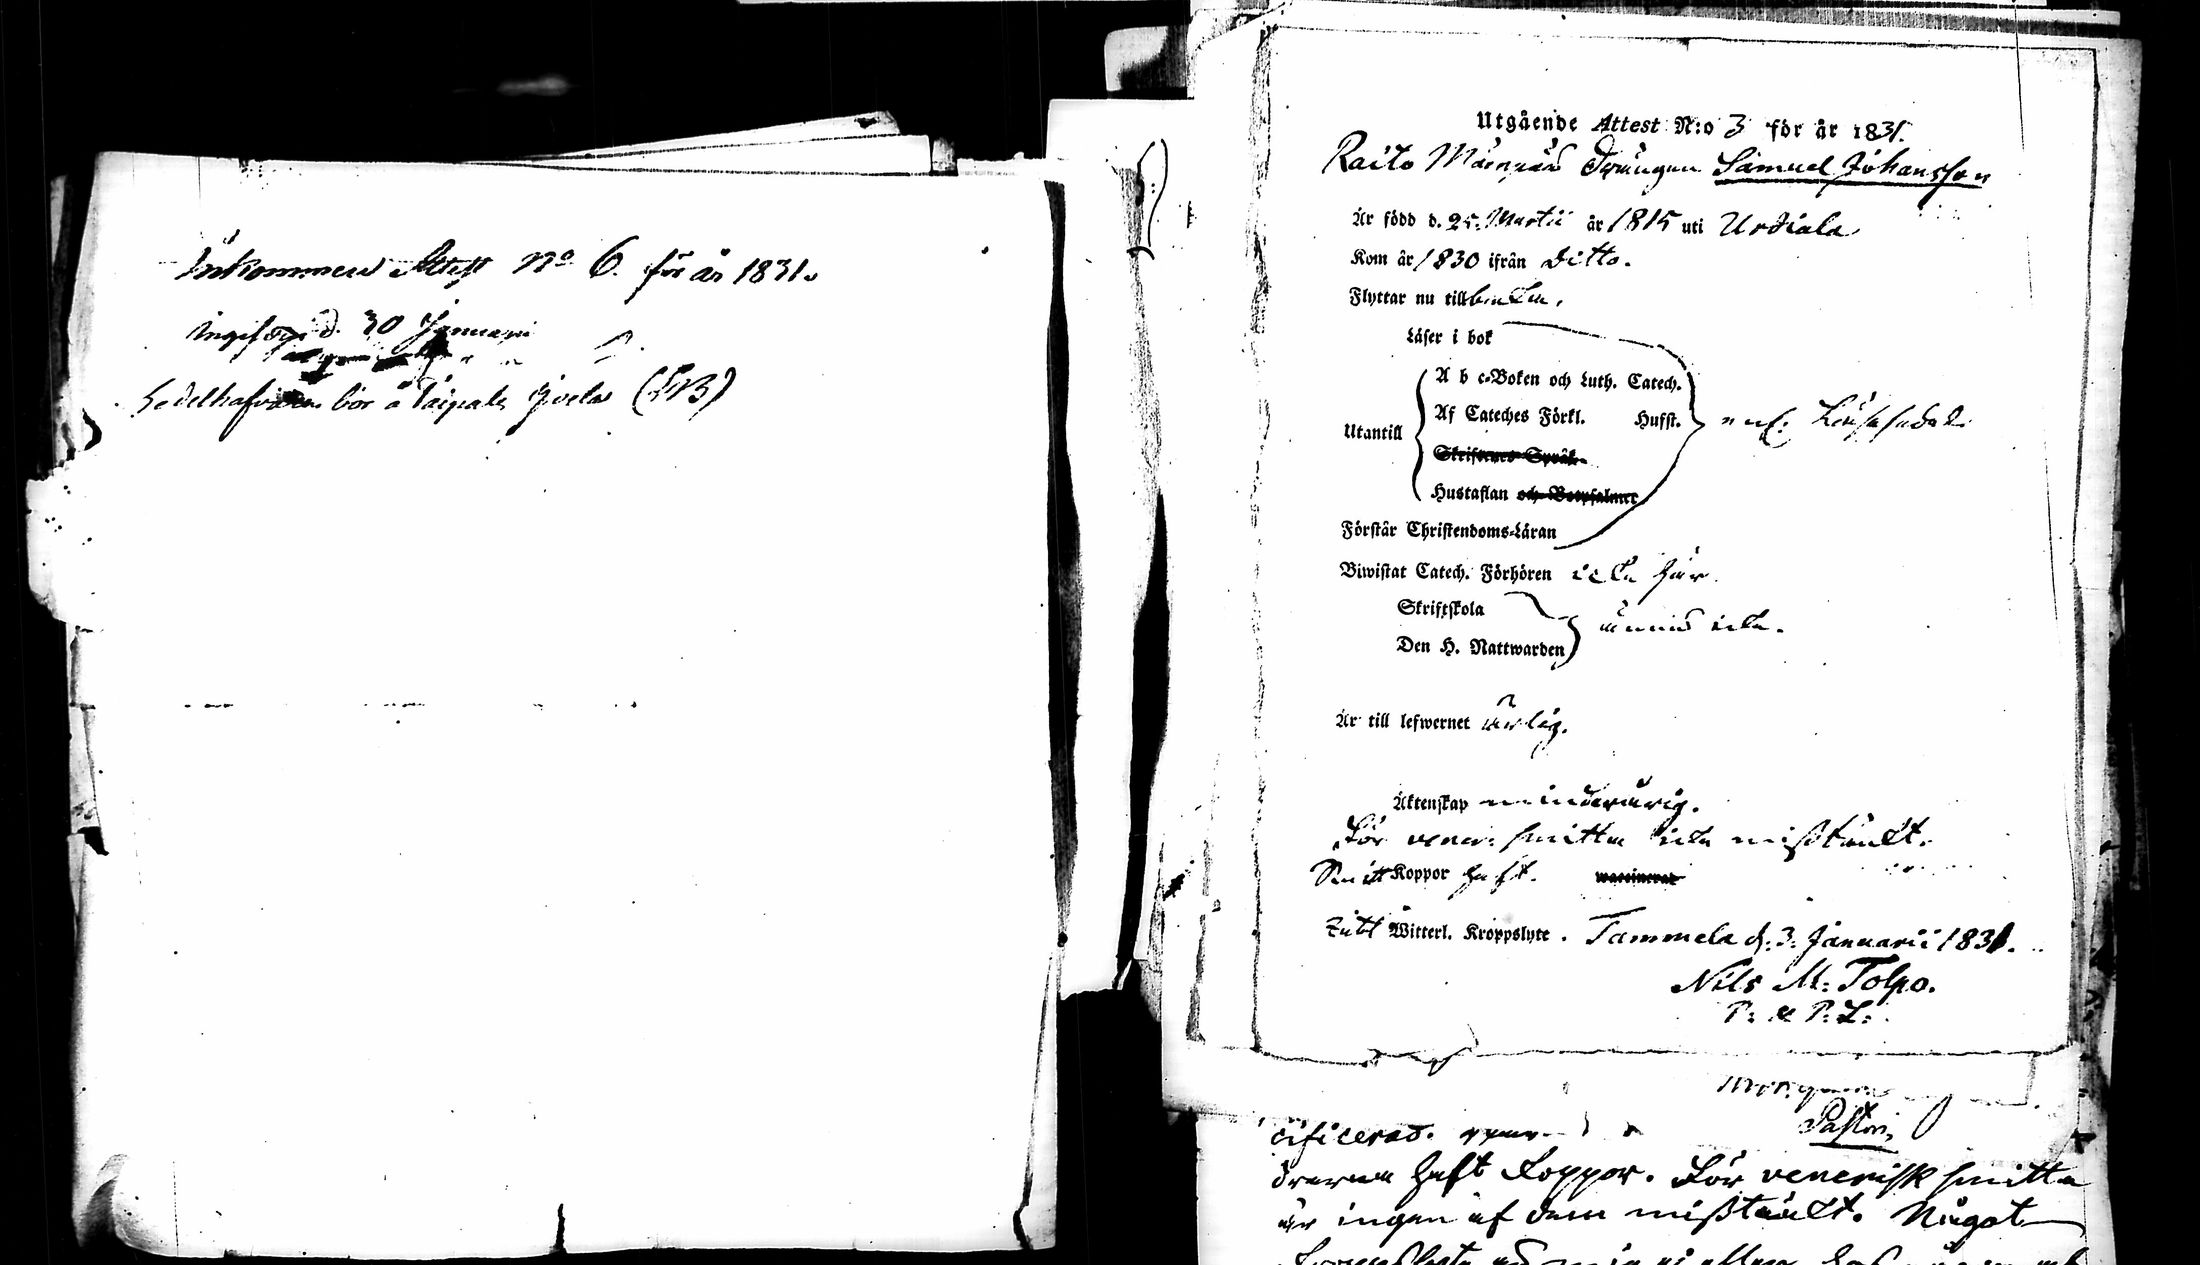 Inkommen Attest No 6. för år 1831.
d. 30 Januari
Sedelhafvaren bor å Taipale
Utgående Attest N:o 3 för år 1831.
Raito Mäenpää Drängen Samuel Johansson
Är född d. 25. Martii år 1815 uti Urdiala
Kom år 1830 ifrån Ditto.
Flyttar nu till
Läser i bok
A b c-Boken och Luth. Catech.
Af Cateches Förkl. Husst.
enl: Läsesedel.
Utantill
Skriftenes Språk.
Hustaflan och Botpsalmer
Förstår Christendoms-Läran
Biwistat Catech. Förhören icke här.
Skriftskola
ännu icke.
Den H. Nattwarden
Är till lefwernet ärlig.
Äktenskap minderårig.
För vener: smitta icke mißtänkt.
Koppor haft. waccinerat
Witterl. Kroppslyte. Tammela d. 3. Januarii 1831.
Nils M: Tolpo.
P: & P: L:
Pastor,
cificerad.
haft koppor. För venerisk smitta
är ingen af dem mißtänkt. Något